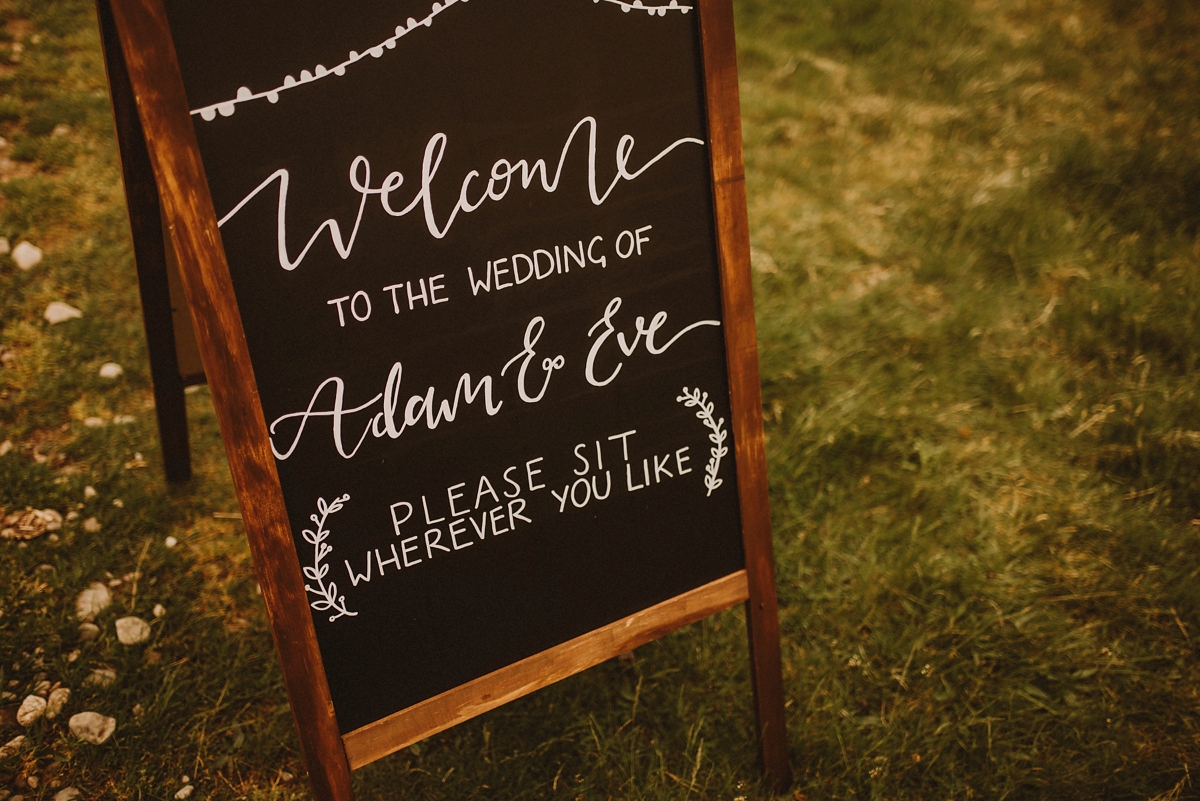 Welcome
TO THE WEDDING OF
Adam & Eve
PLEASE SIT
WHEREVER YOU LIKE